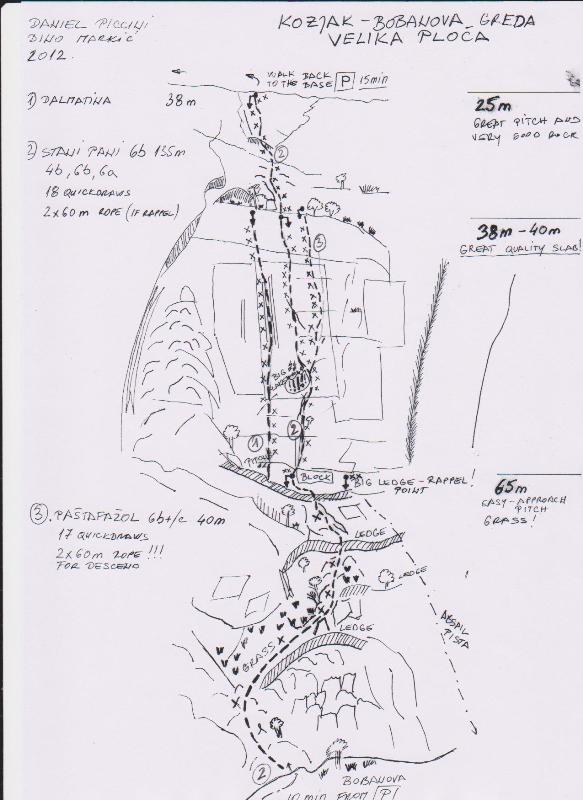 DANIEL PICCINI
DINO MARKIĆ
2012.
KOZJAK - BOBANOVA GREDA
VELIKA PLOČA
WALK BACK
TO THE BASE P 15 min
1) DALMATINA 38 m
25 m
GREAT PITCH AND
VERY GOOD ROCK
2) STANI PANI 6b 135m
4b, 6b, 6a
18 QUICKDRAWS
2x60 m ROPE (IF RAPPEL)
2
3
38m - 40m
GREAT QUALITY SLAB!
BIG
1
2
BLOCK
BIG LEDGE - RAPPEL!
POINT
65m
EASY-APPROACH
PITCH
GRASS!
3. PAŠTAFAŽOL 6b+/c 40m
17 QUICKDRAWS
2x60 m ROPE !!!
FOR DESCEND
LEDGE
LEDGE
LEDGE
GRASS
ABSAIL
PISTA
2
BOBANOVA
10 min FROM P